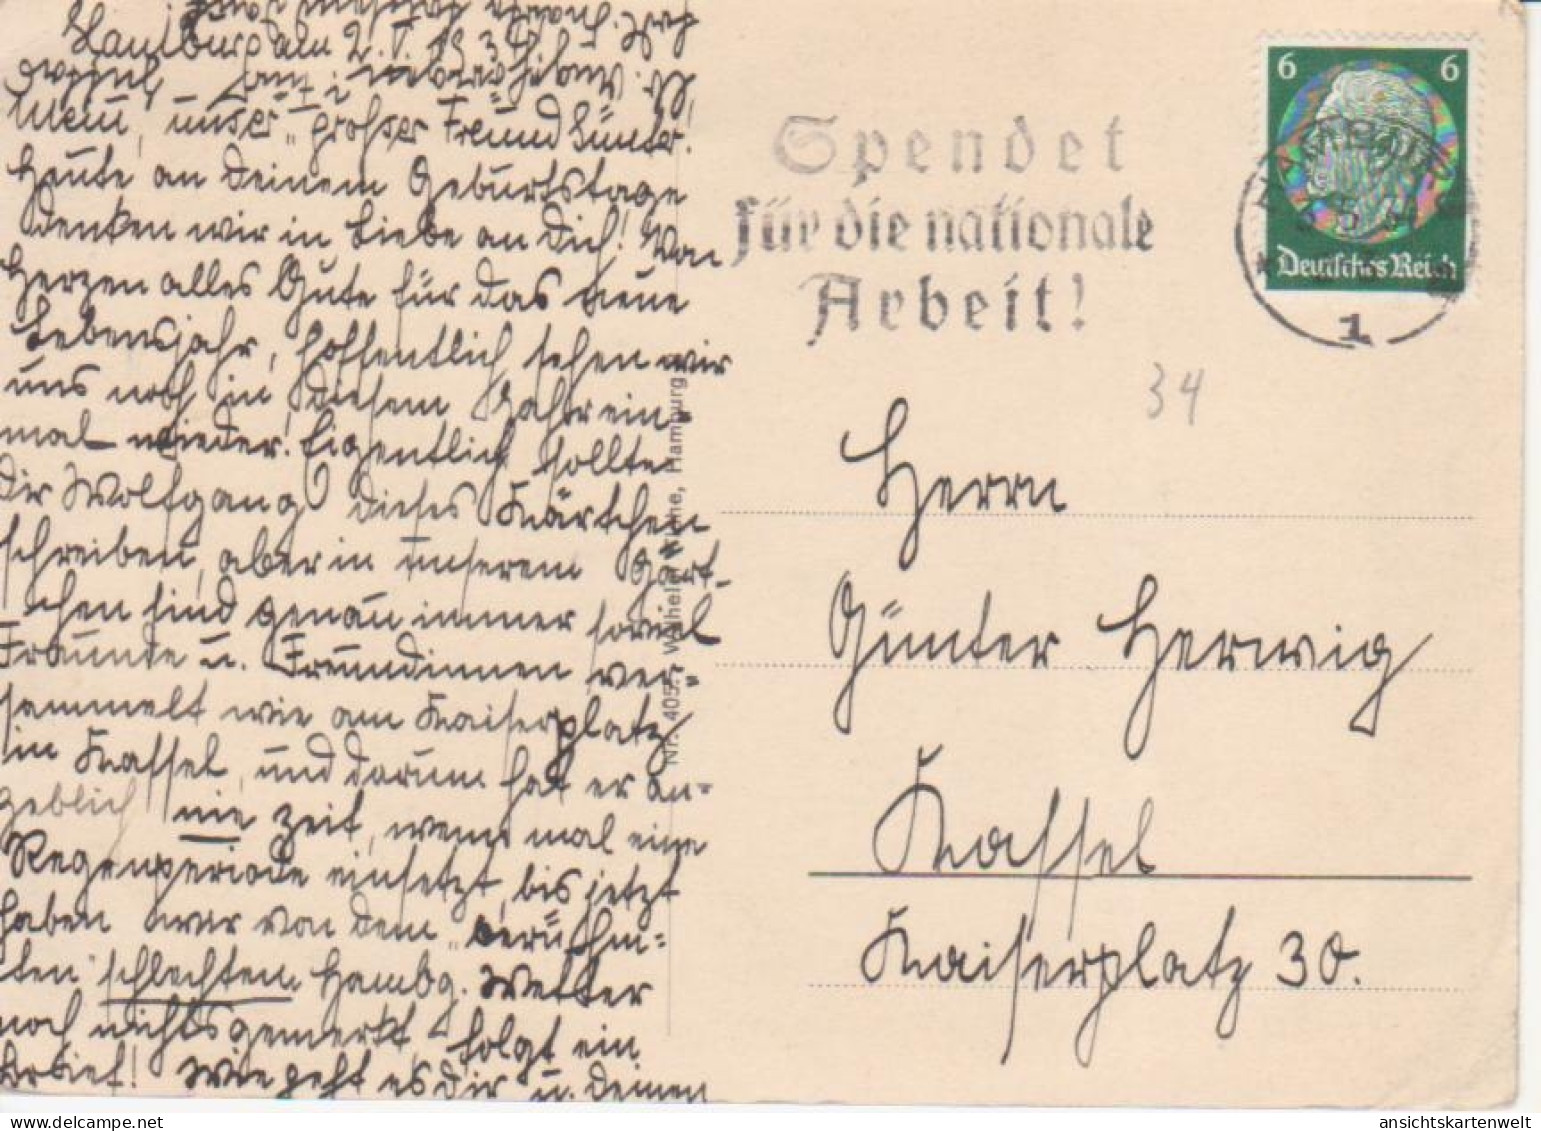 Hamburg am 2.V.1934.
Mein, unser „großer Freund Günter.
Heute an Deinem Geburtstage
denken wir in Liebe an Dich! Von
Herzen alles Gute für das neue
Lebensjahr, hoffentlich sehen wir
uns noch in diesem Jahr ein-
mal wieder. Eigentlich sollte
Dir Wolfgang dieses Kärtchen
schreiben, aber in unserem Gärt-
chen sind genau immer soviel
Freunde u. Freundinnen ver-
sammelt wie am Kaiserplatz
in Kassel, und darum hat er an-
geblich nie Zeit, wenn mal eine
Regenperiode einsetzt, bis jetzt
haben wir von dem „berühm-
ten" schlechten Hambg. Wetter
noch nichts gemerkt – folgt ein
Brief! Wie geht es Dir u. Deinen
Nr. 405. Wilhelm Hamburg
Spendet
für die nationale
Arbeit!
6 6
Deutsches Reich
HAMBURG
1
34
Herrn
Günter Herwig
Kassel
Kaiserplatz 30.
ansichtskartenwelt